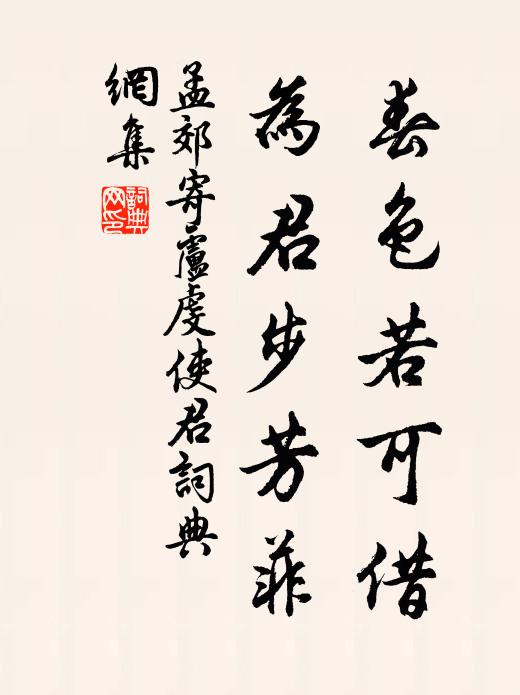 春色若可借
為君步芳菲
孟郊寄盧虔使君詞典
網集
詞典网印